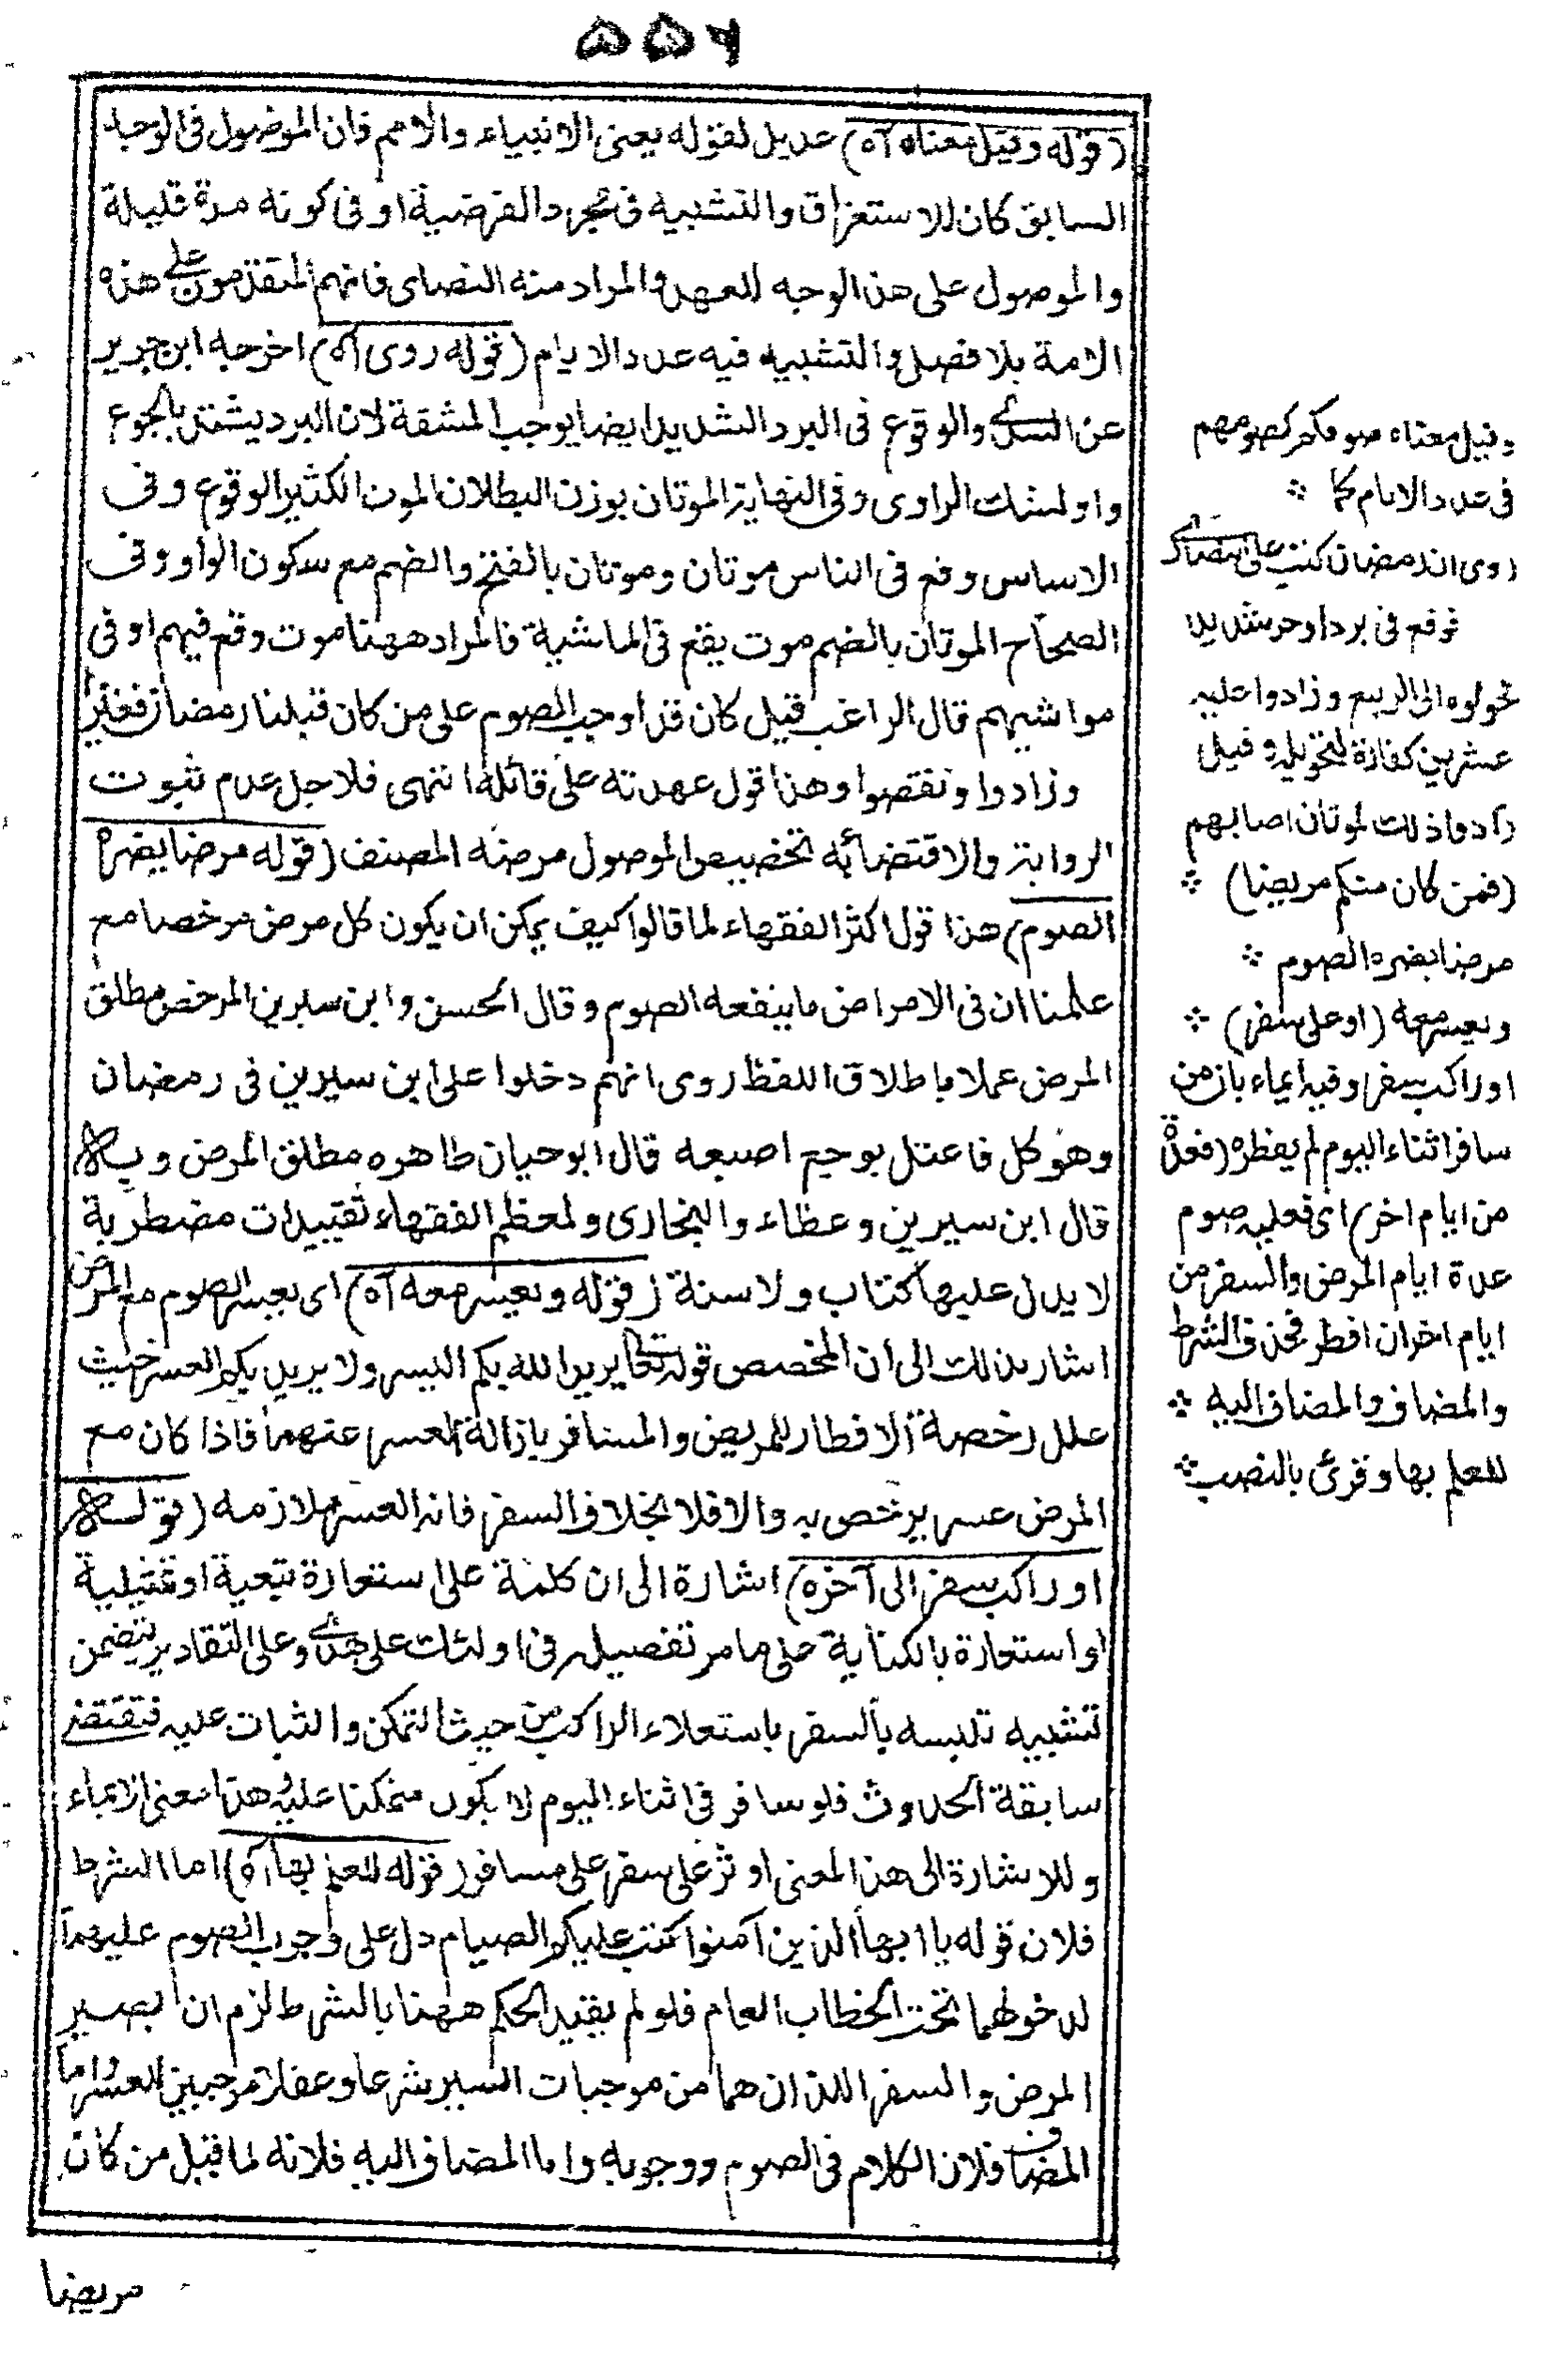 ٥٥٦
(قوله وقيل معناه اه) عديل لقوله يعنى الانبياء والامم فان الموصول فى الوجه
السابق كان للاستغراق والتشبيه فى مجرد الفرضية او فى كونه مدة قليلة
والموصول على هذا الوجه للعهد والمراد منه النصارى فانهم المتقدمون على هذه
الامة بلا فصل والتشبيه فيه عدد الايام (قوله روى اه) اخرجه ابن جرير
عن السدى والوقوع فى البرد الشديد ايضا يوجب المشقة لان البرد يشتد بالجوع
واو لشك الراوى وفى النهاية الموتان بوزن البطلان الموت الكثير الوقوع وفى
الاساس وقع فى الناس موتان وموتان بالفتح والضم مع سكون الواو وفى
الصحاح الموتان بالضم موت يقع فى الماشية فالمراد ههنا موت وقع فيهم او فى
مواشيهم قال الراغب قيل كان قد اوجب الصوم على من كان قبلنا رمضان فغيروا
وزادوا ونقصوا وهذا قول عهدته على قائله انتهى فلاجل عدم ثبوت
الرواية والاقتضائه تخصيص الموصول مرضه المصنف (قوله مرضا يضره
الصوم) هذا قول اكثر الفقهاء لما قالوا كيف يمكن ان يكون كل مرض مرخصا مع
علمنا ان فى الامراض ما ينفعه الصوم وقال الحسن وابن سيرين المرخص مطلق
المرض عملا باطلاق اللفظ روى انهم دخلوا على ابن سيرين فى رمضان
وهو كل فاعتل بوجع اصبعه قال ابو حيان ظاهره مطلق المرض وبه
قال ابن سيرين وعطاء والبخارى ولمعظم الفقهاء تقييدات مضطربة
لا يدل عليها كتاب ولا سنة (قوله ويعسر معه اه) اى يعسر الصوم مع المرض
اشار بذلك الى ان المخصص قوله تعالى يريد الله بكم اليسر ولا يريد بكم العسر حيث
علل رخصة الافطار للمريض والمسافر بازالة العسر عنهما فاذا كان مع
المرض عسر يرخص به والا فلا بخلاف السفر فانه العسر ملازمه (قوله
او راكب سفر الى آخره) اشارة الى ان كلمة على استعارة تبعية او تمثيلية
او استعارة بالكناية على ما مر تفصيله فى اولئك على هدى وعلى التقادير يتضمن
تشبيه تلبسه بالسفر باستعلاء الراكب من حيث التمكن والثبات عليه فتقتضى
سابقة الحدوث فلو سافر فى اثناء اليوم لا يكون متمكنا عليه وهذا معنى الايماء
وللاشارة الى هذا المعنى اوثر على سفر على مسافر (قوله للعلم بها اه) اما الشرط
فلان قوله يا ايها الذين آمنوا كتب عليكم الصيام دل على وجوب الصوم عليهما
لدخولهما تحت الخطاب العام فلو لم يقيد الحكم ههنا بالشرط لزم ان يصير
المرض والسفر اللذان هما من موجبات اليسر شرعا وعقلا موجبين العسر واما
المضاف فلان الكلام فى الصوم ووجوبه واما المضاف اليه فلانه لما قيل من كان
مريضا
وقيل معناه صومكم كصومهم
فى عدد الايام كما
روى ان رمضان كتب على نصارى
فوقع فى برد او حر شديد
فحولوه الى الربيع وزادوا عليه
عشرين كفارة لتحويله وقيل
زادوا ذلك لموتان اصابهم
(فمن كان منكم مريضا)
مرضا يضره الصوم
ويعسر معه (او على سفر)
او راكب سفر وفيه ايماء بان من
سافر اثناء اليوم لم يفطر (فعدة
من ايام اخر) اى فعليه صوم
عدة ايام المرض والسفر من
ايام اخر ان افطر فحذف الشرط
والمضاف والمضاف اليه
للعلم بها وقرئ بالنصب